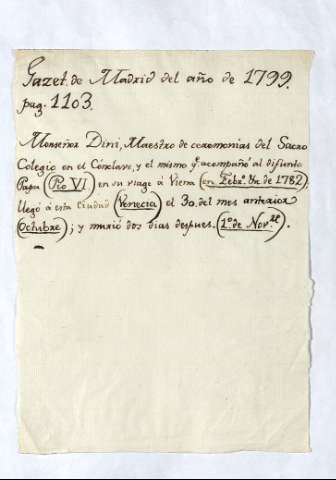 Gazet. de Madrid del año de 1799.
pag. 1103.
Monseñor Dini, Maestro de ceremonias del Sacro
Colegio en el Cónclave, y el mismo qe. acompañó al difunto
Papa (Pio VI) en su viage á Viena (en Febo. de 1782),
llegó á esta Ciudad (Venecia) el 30. del mes anterior
(Octubre); y murió dos dias despues. (1º. de Nove.).